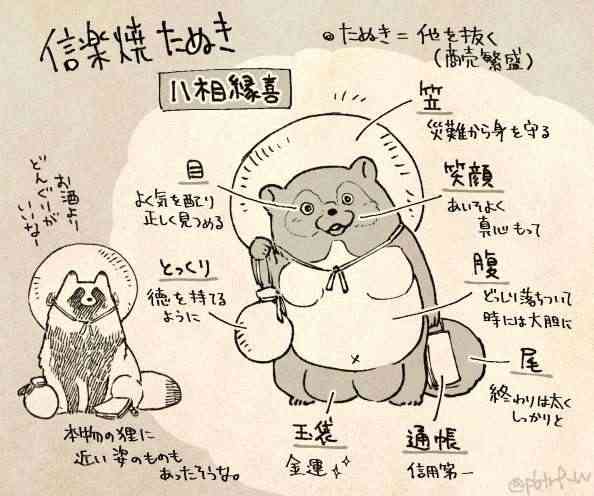 信楽焼たぬき
◎たぬき＝他を抜く
(商売繁盛)
八相縁喜
笠
災難から身を守る
目
よく気を配り
正しく見つめる
笑顔
あいそよく
真心もって
お酒より
どんぐりが
いいな
とっくり
徳を持てる
ように
腹
どっしり落ちついて
時には大胆に
尾
終わりは太く
しっかりと
玉袋
金運
通帳
信用第一
本物の狸に
近い姿のものも
あったそうな。